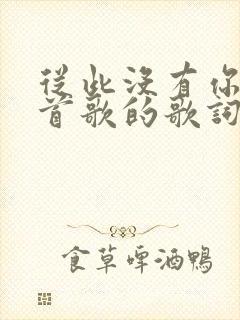 從此沒有你
首歌的歌詞
食草啤酒鴨